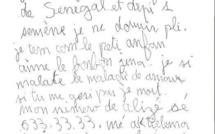 de Sénégal et depi 1
semène je ne dormir pli.
je tem com le peti anfan
aime le bonbon jene. je si
malate le malate de amour
si tu me pasi pa je mort.
mon numero de silize sé
633.33.33. mé